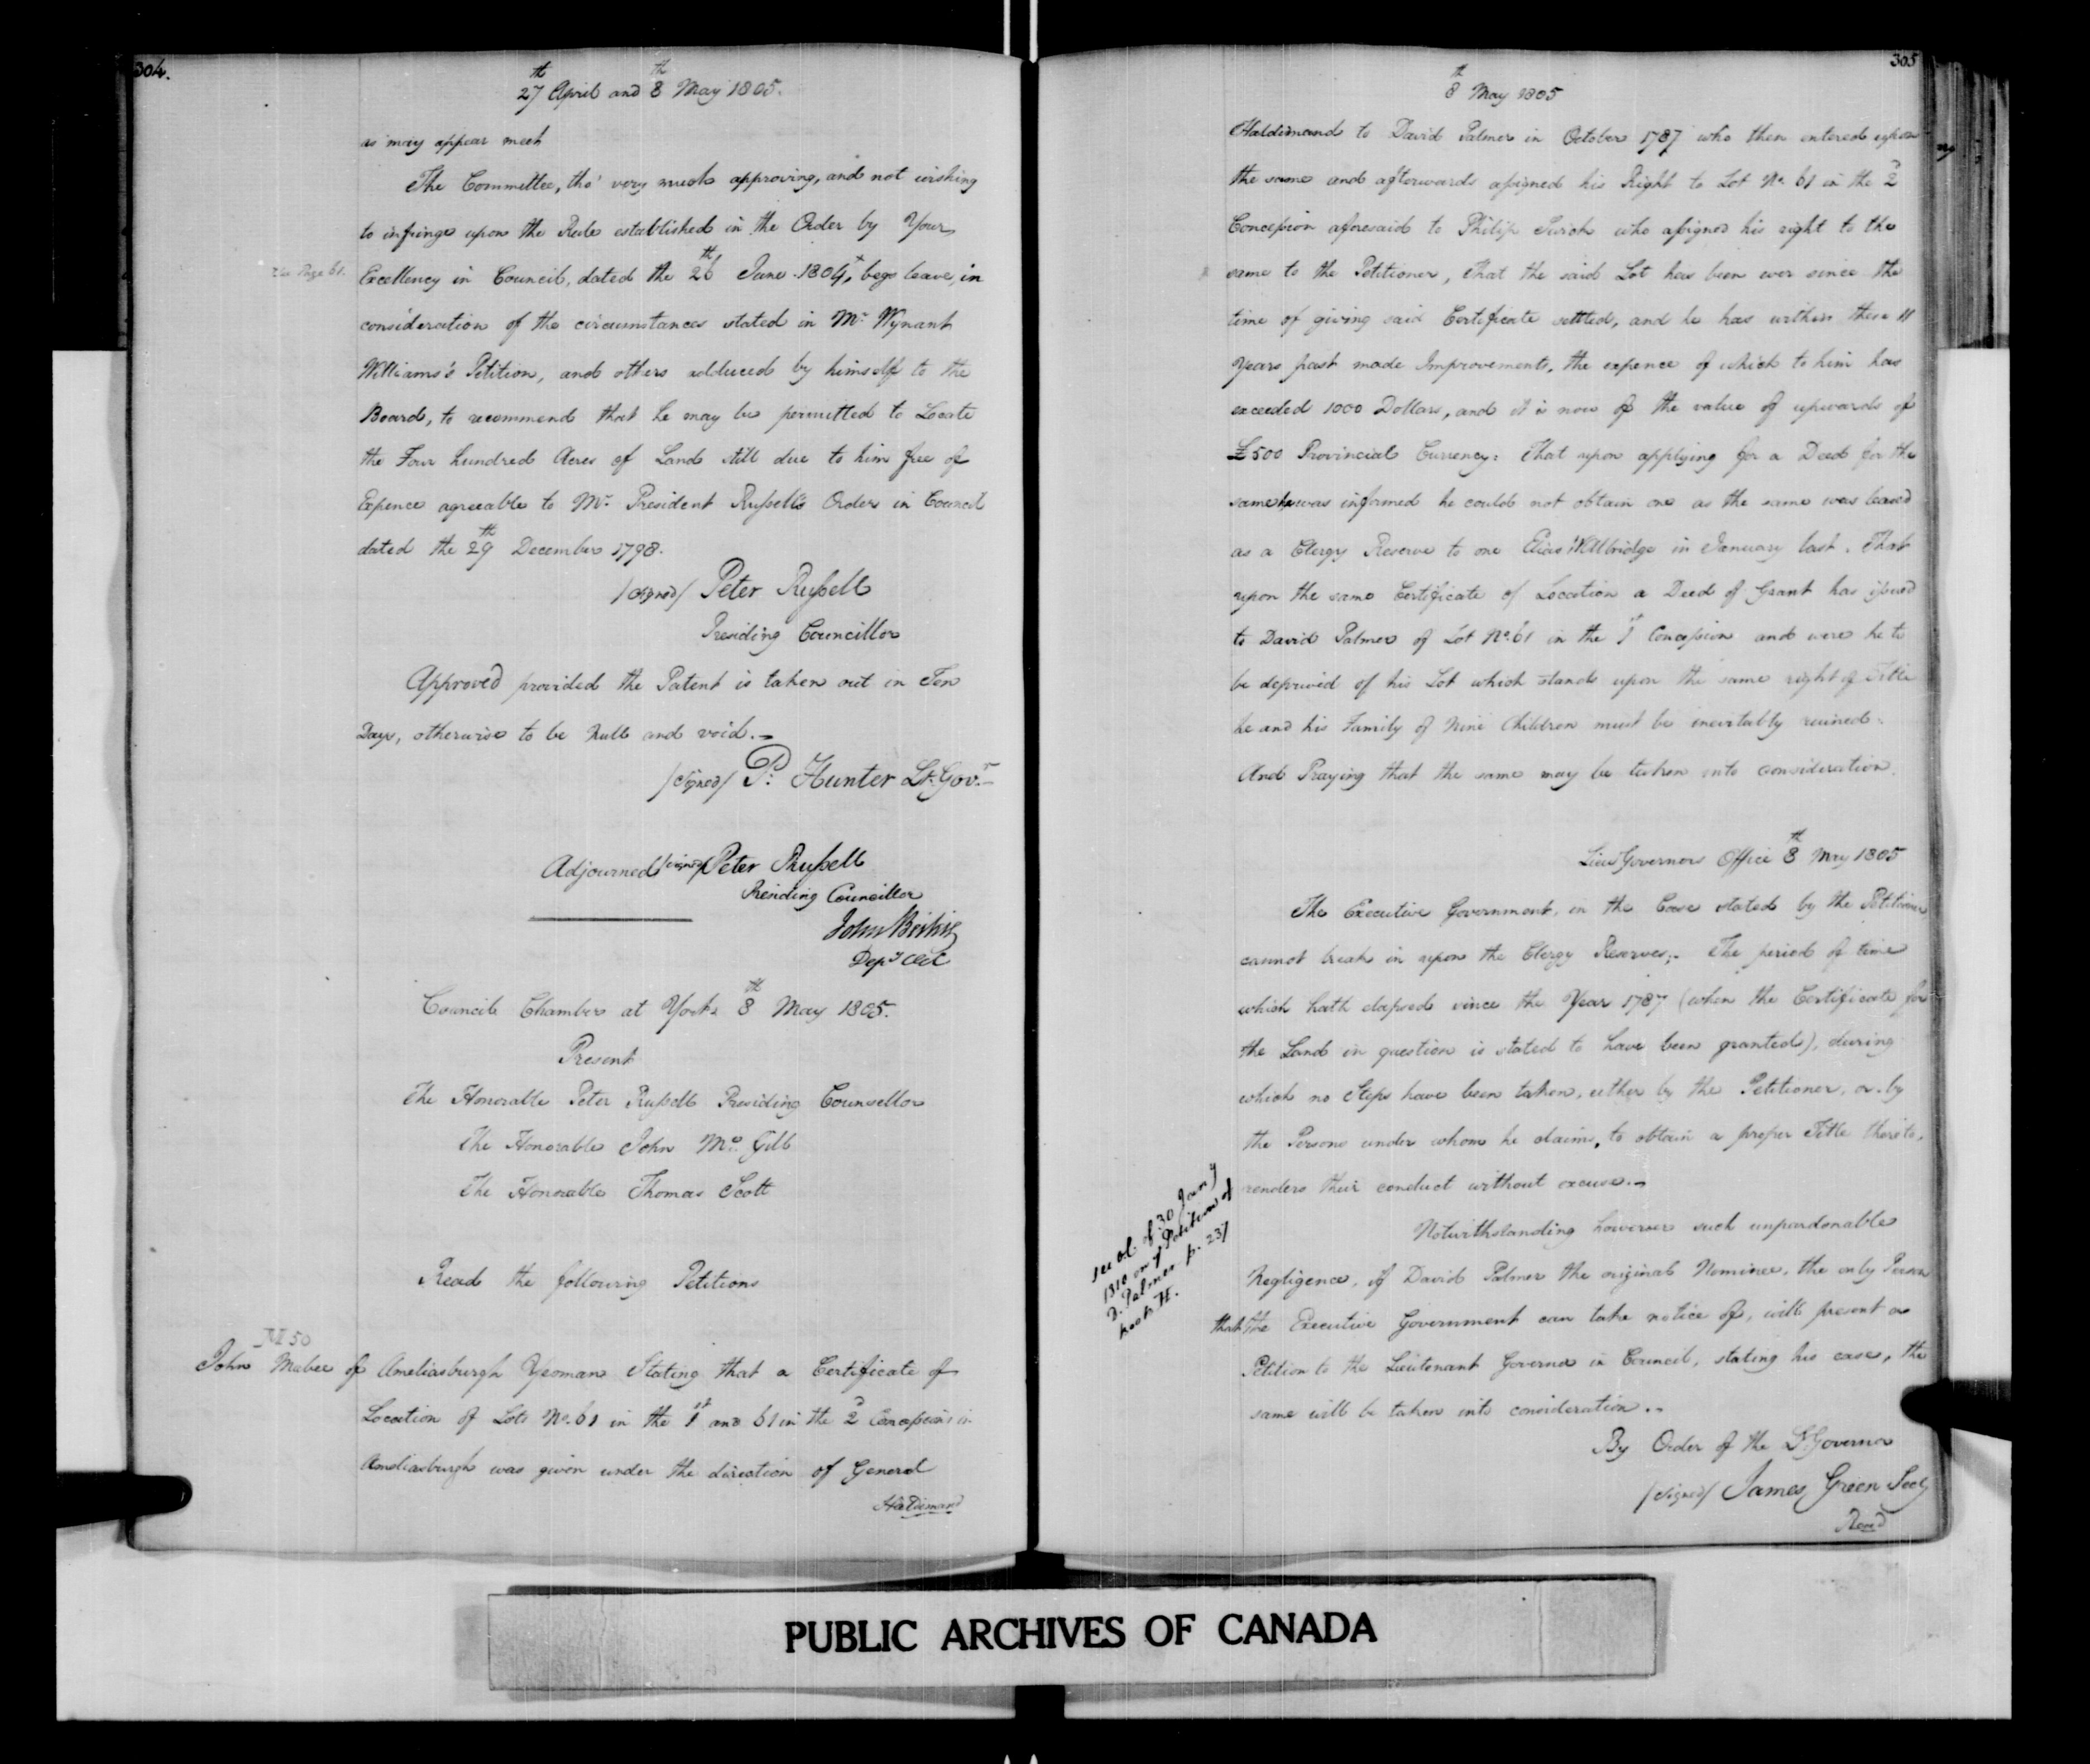 304.
27th April and 8th May 1805.
as may appear meet
The Committee, tho' very much approving, and not wishing
to infringe upon the Rule established in the Order by Your
Vide Page 61.
Excellency in Council, dated the 26th June 1804, begs leave, in
consideration of the circumstances stated in Mr Wynant
Williams's Petition, and others adduced by himself to the
Board, to recommend that he may be permitted to Locate
the Four hundred Acres of Land still due to him free of
Expence agreeable to Mr President Russell's Order in Council
dated the 29th December 1798.
/signed/ Peter Russell
Presiding Councillor
Approved provided the Patent is taken out in Ten
Days, otherwise to be Null and void.
/signed/ P: Hunter Lt. Govr.
Adjourned /signed/ Peter Russell
Presiding Councillor
John Beikie
Depy Clk
Council Chamber at York 8th May 1805.
Present
The Honorable Peter Russell Presiding Councellor
The Honorable John McGill
The Honorable Thomas Scott
Read the following Petitions
M 50
John Mabee of Ameliasburgh Yeoman Stating that a Certificate of
Location of Lots No. 61 in the 1st and 61 in the 2d Concessions in
Ameliasburgh was given under the direction of General
Haldimand
305
8th May 1805
Haldimand to David Palmer in October 1787 who then entered upon
the same and afterwards assigned his Right to Lot No. 61 in the 2d
Concession aforesaid to Philip Swick who assigned his right to the
same to the Petitioner, That the said Lot has been ever since the
time of giving said Certificate settled, and he has within these 11
Years past made Improvements, the expence of which to him has
exceeded 1000 Dollars, and it is now of the value of upwards of
£500 Provincial Currency: That upon applying for a Deed for the
same he was informed he could not obtain one as the same was leased
as a Clergy Reserve to one Elias Wallbridge in January last. That
upon the same Certificate of Location a Deed of Grant has issued
to David Palmer of Lot No. 61 in the 1st Concession and were he to
be deprived of his Lot which stands upon the same right of Title
he and his Family of Nine Children must be inevitably ruined.
And Praying that the same may be taken into consideration.
Lieut Governors Office 8th May 1805
The Executive Government, in the Case stated by the Petitioner,
cannot break in upon the Clergy Reserves;- The period of time
which hath elapsed since the Year 1787 (when the Certificate for
the Land in question is stated to have been granted), during
which no Steps have been taken, either by the Petitioner, or by
the Persons under whom he claims, to obtain a proper Title thereto,
renders their conduct without excuse.-
Notwithstanding however such unpardonable
Negligence, if David Palmer the original Nominee, the only Person
that the Executive Government can take notice of, will present a
Petition to the Lieutenant Governor in Council, stating his case, the
same will be taken into consideration.-
see of 30 Jany
1810 on ye Petition of
D. Palmer p. 237
book H.
By Order of the Lt Governor
/signed/ James Green Secy
Read
PUBLIC ARCHIVES OF CANADA